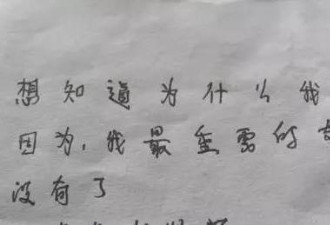 想知道为什么我
因为,我最重需的
没有了